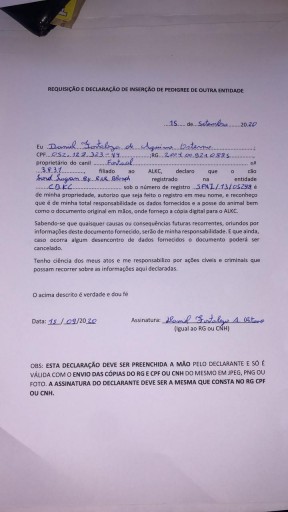 REQUISIÇÃO E DECLARAÇÃO DE INSERÇÃO DE PEDIGREE DE OUTRA ENTIDADE
15 de Setembro 2020
Eu Daniel Fortaleza de
CPF RG
proprietário do canil nº
3831 filiado ao ALKC, declaro que o cão
registrado na entidade
CBKC sob o número de registro
de minha propriedade, autorizo que seja feito o registro em meu nome, e reconheço
que é de minha total responsabilidade os dados fornecidos e a posse do animal bem
como o documento original em mãos, onde forneço a cópia digital para o ALKC.
Sabendo-se que quaisquer causas ou consequências futuras recorrentes, oriundos por
informações deste documento fornecido, serão de minha responsabilidade. E que ainda,
caso ocorra algum desencontro de dados fornecidos o documento poderá ser
cancelado.
Tenho ciência dos meus atos e me responsabilizo por ações cíveis e criminais que
possam recorrer sobre as informações aqui declaradas.
O acima descrito é verdade e dou fé
Data: 15 / 09/2020 Assinatura: Daniel Fortaleza
(Igual ao RG ou CNH)
OBS: ESTA DECLARAÇÃO DEVE SER PREENCHIDA A MÃO PELO DECLARANTE E SÓ É
VÁLIDA COM O ENVIO DAS CÓPIAS DO RG E CPF OU CNH DO MESMO EM JPEG, PNG OU
FOTO. A ASSINATURA DO DECLARANTE DEVE SER A MESMA QUE CONSTA NO RG CPF
OU CNH.